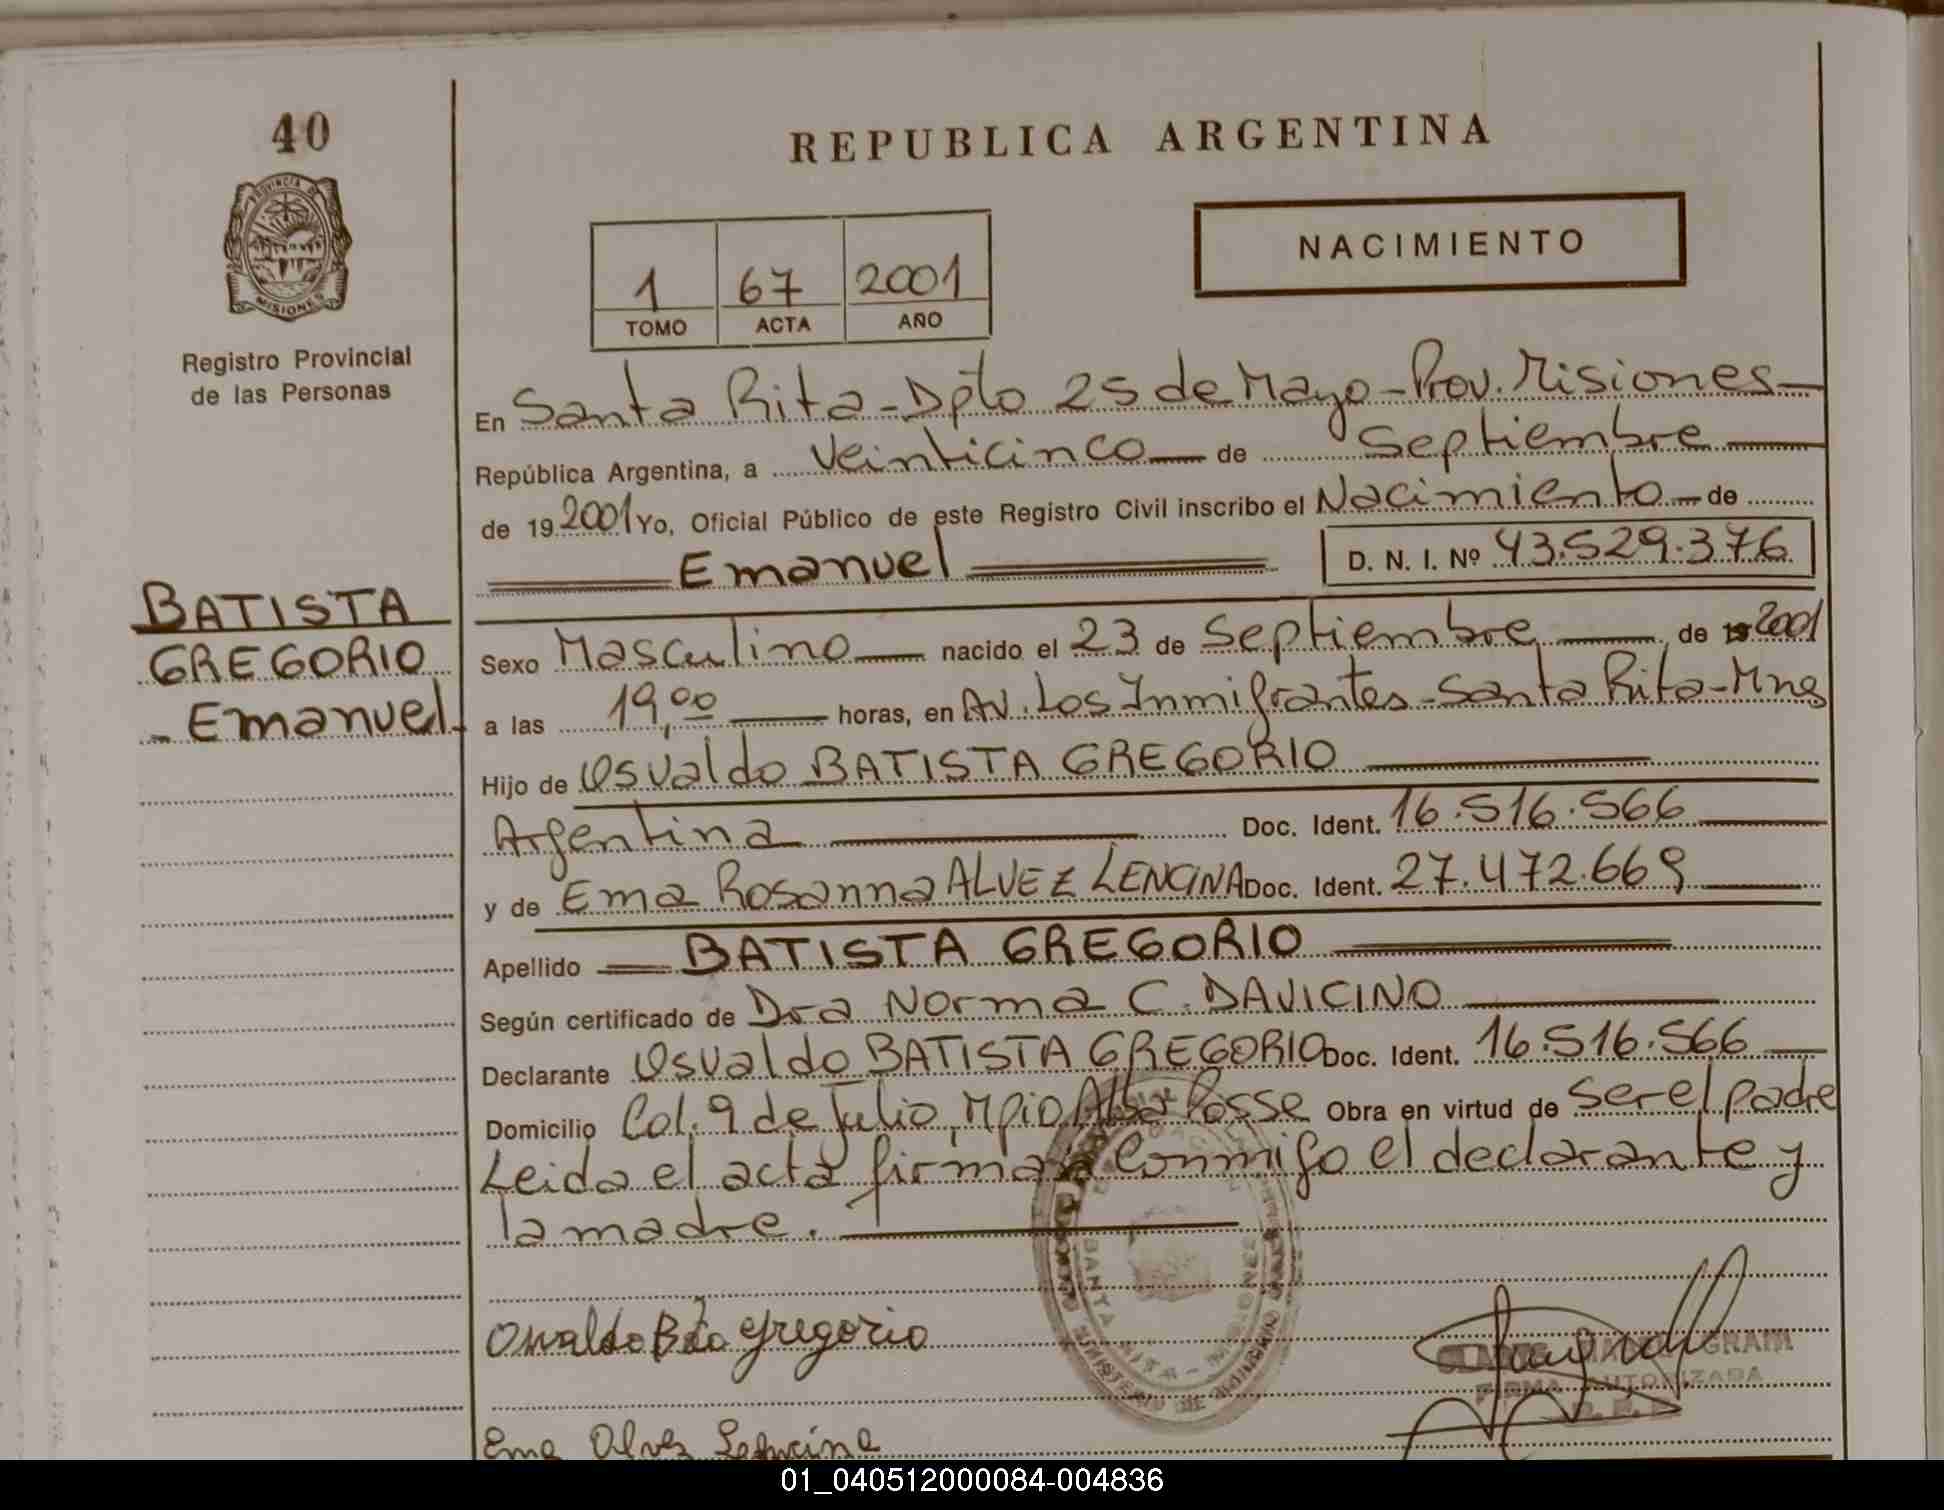 40
REPUBLICA ARGENTINA
PROVINCIA DE
MISIONES
Registro Provincial
de las Personas
1 67 2001
TOMO ACTA AÑO
NACIMIENTO
En Santa Rita - Dpto 25 de Mayo - Prov. Misiones
República Argentina, a Veinticinco de Septiembre
de 19 2001 Yo, Oficial Público de este Registro Civil inscribo el Nacimiento de
Emanuel D. N. I. Nº 43.529.376
BATISTA
GREGORIO
- Emanuel -
Sexo Masculino nacido el 23 de Septiembre de 19 2001
a las 19,00 horas, en Av. Los Inmigrantes - Santa Rita - Mnes
Hijo de Osvaldo BATISTA GREGORIO
Argentina Doc. Ident. 16.516.566
y de Ema Rosanna ALVEZ LENCINA Doc. Ident. 27.472.669
Apellido BATISTA GREGORIO
Según certificado de Dra Norma C. DAVICINO
Declarante Osvaldo BATISTA GREGORIO Doc. Ident. 16.516.566
Domicilio Col. 9 de Julio, Mpio Alba Posse Obra en virtud de ser el padre
Leida el acta firman conmigo el declarante y
la madre.
SANTA RITA - MISIONES
Osvaldo Bta Gregorio
FIRMA AUTORIZADA
Ema Alvez Lencina
01_040512000084-004836